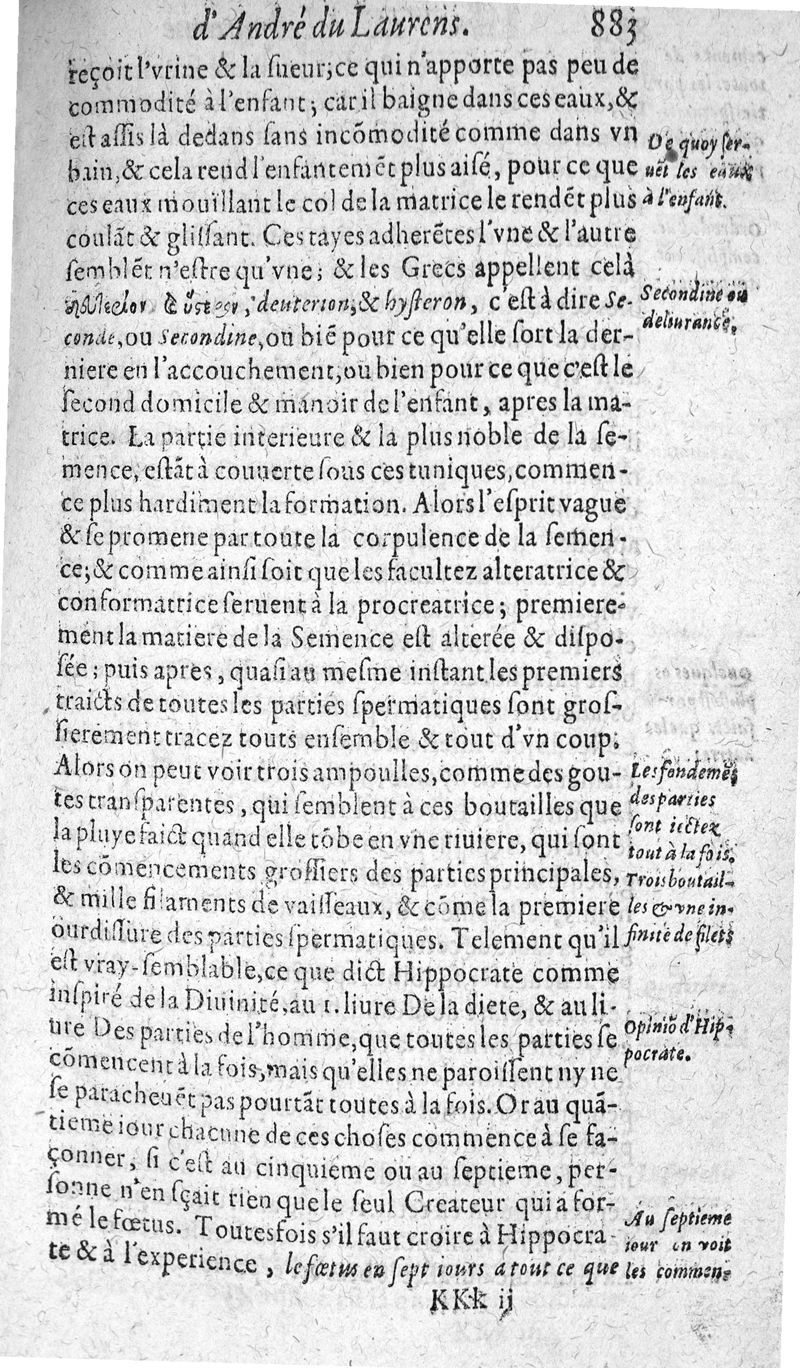 d'André du Laurens. 883
reçoit l'vrine & la sueur; ce qui n'apporte pas peu de
commodité à l'enfant; car il baigne dans ces eaux, &
est assis là dedans sans incõmodité comme dans vn
bain, & cela rend l'enfantemẽt plus aisé, pour ce que
ces eaux mouillant le col de la matrice le rendẽt plus
coulãt & glissant. Ces tayes adherẽtes l'vne & l'autre
semblẽt n'estre qu'vne; & les Grecs appellent celà
deuterion, & hysteron, c'est à dire Se-
conde, ou Secondine, ou biẽ pour ce qu'elle sort la der-
niere en l'accouchement, ou bien pour ce que c'est le
second domicile & manoir de l'enfant, apres la ma-
trice. La partie interieure & la plus noble de la se-
mence, estãt à couuerte sous ces tuniques, commen-
ce plus hardiment la formation. Alors l'esprit vague
& se promene par toute la corpulence de la semen-
ce; & comme ainsi soit que les facultez alteratrice &
conformatrice seruent à la procreatrice; premiere-
ment la matiere de la Semence est alterée & dispo-
sée; puis apres, quasi au mesme instant les premiers
traicts de toutes les parties spermatiques sont gros-
sierement tracez touts ensemble & tout d'vn coup.
Alors on peut voir trois ampoulles, comme des gou-
tes transparentes, qui semblent à ces boutailles que
la pluye faict quand elle tõbe en vne riuiere, qui sont
les cõmencements grossiers des parties principales,
& mille filaments de vaisseaux, & cõme la premiere
ourdissure des parties spermatiques. Telement qu'il
est vray-semblable, ce que dict Hippocrate comme
inspiré de la Diuinité, au 1. liure De la diete, & au li-
ure Des parties de l'homme, que toutes les parties se
cõmencent à la fois, mais qu'elles ne paroissent ny ne
se paracheuẽt pas pourtãt toutes à la fois. Or au quã-
tieme iour chacune de ces choses commence à se fa-
çonner, si c'est au cinquiéme ou au septieme, per-
sonne n'en sçait rien que le seul Createur qui a for-
mé le fœtus. Toutesfois s'il faut croire à Hippocra-
te & à l'experience, le fœtus en sept iours a tout ce que
KKk ij
De quoy ser-
uẽt les eaux
à l'enfant.
Secondine ou
deliurance.
Les fondemẽs
des parties
sont iettez
tout à la fois.
Trois boutail-
les & vne in-
finité de filets
Opiniõ d'Hip-
pocrate.
Au septieme
iour on voit
les commen-